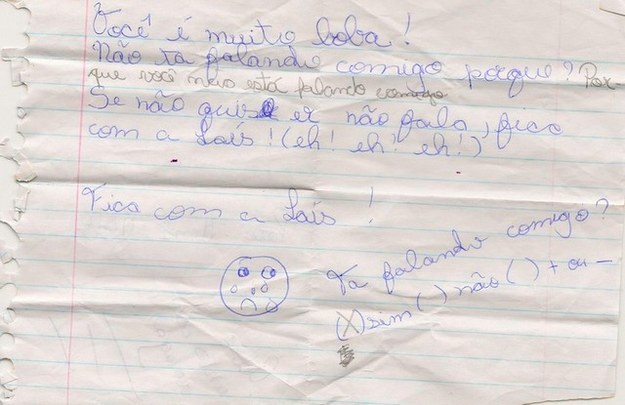 Você é muito boba!
Não ta falando comigo porque? Por-
que você não está falando comigo
Se não quiser er não fala, fica
com a Laís! (eh! eh! eh!)
Fica com a Laís!
Ta falando comigo?
(X) sim ( ) não ( ) + ou -